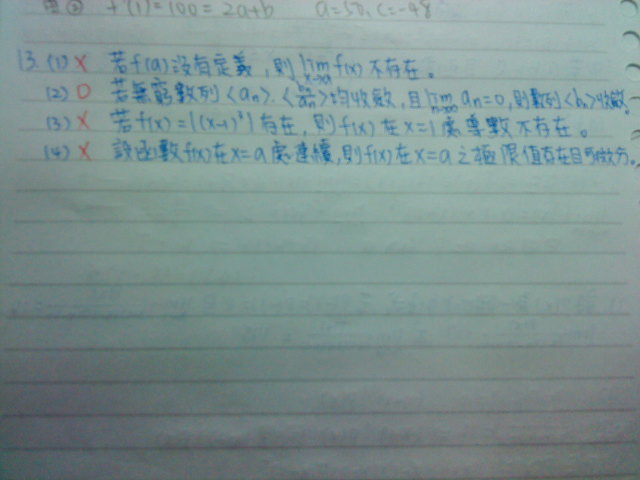 f'(1)=100=2a+b a=50, c=-48
13. (1) X 若f(a)沒有定義,則lim x→a f(x)不存在。
(2) O 若無窮數列<an>、均收斂,且lim n→∞ an=0,則數列<bn>收斂。
(3) X 若f(x)=|(x-1)³|存在,則f(x)在x=1處導數不存在。
(4) X 設函數f(x)在x=a處連續,則f(x)在x=a之極限值存在且可微分。